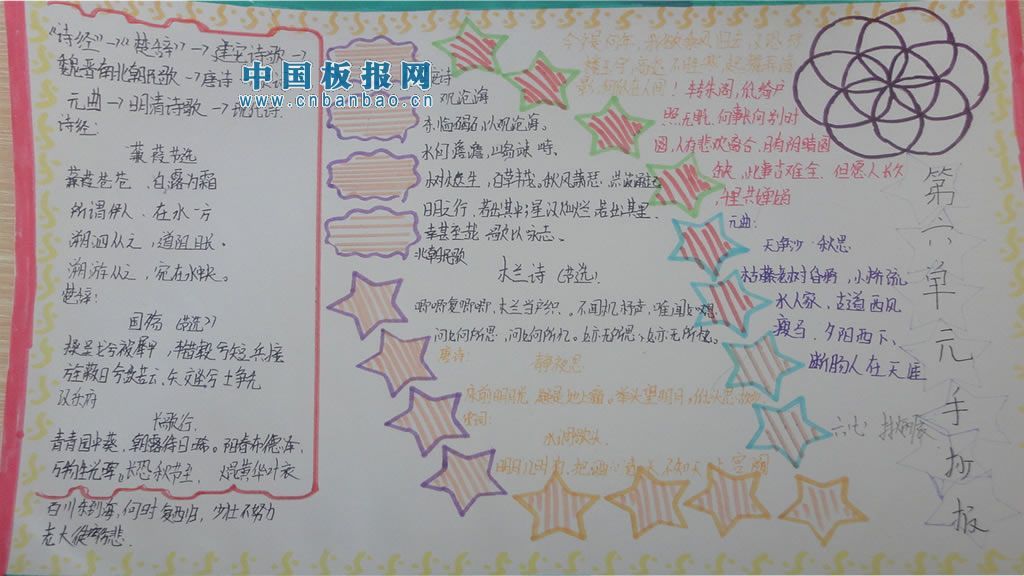 "诗经"→"楚辞"→建安诗歌→
魏晋南北朝民歌→唐诗
元曲→明清诗歌→现代诗.
诗经:
蒹葭 节选
蒹葭苍苍 白露为霜
所谓伊人、在水一方
溯洄从之,道阻且长、
溯游从之,宛在水中央。
楚辞:
国殇 (节选)
操吴戈兮被犀甲 车错毂兮短兵接
旌蔽日兮敌若云、矢交坠兮士争先
汉乐府
长歌行
青青园中葵,朝露待日晞。阳春布德泽,
万物生光辉。长恐秋节至, 焜黄华叶衰
百川东到海,何时复西归,少壮不努力
老大徒伤悲.
中国板报网
www.cnbanbao.cn
观沧海
东临碣石以观沧海。
水何澹澹,山岛竦峙,
树木丛生,百草丰茂。秋风萧瑟,洪波涌起
日月之行,若出其中;星汉灿烂,若出其里.
幸甚至哉 歌以咏志。
北朝民歌
木兰诗 (节选)
唧唧复唧唧,木兰当户织。不闻机杼声,唯闻女叹息
问女何所思,问女何所忆。女亦无所思,女亦无所忆。
唐诗:
静夜思
床前明月光,疑是地上霜。举头望明月,低头思故乡
宋词:
水调歌头
明月几时有,把酒问青天 不知天上宫阙
今夕是何年,我欲乘风归去,又恐琼
楼玉宇,高处不胜寒 起舞弄清
影,何似在人间! 转朱阁,低绮户
照无眠. 何事长向别时
圆,人有悲欢离合,月有阴晴圆
缺,此事古难全. 但愿人长久
千里共婵娟
元曲:
天净沙 秋思
枯藤老树昏鸦,小桥流
水人家,古道西风
瘦马. 夕阳西下、
断肠人在天涯
六七:
第六单元手抄报